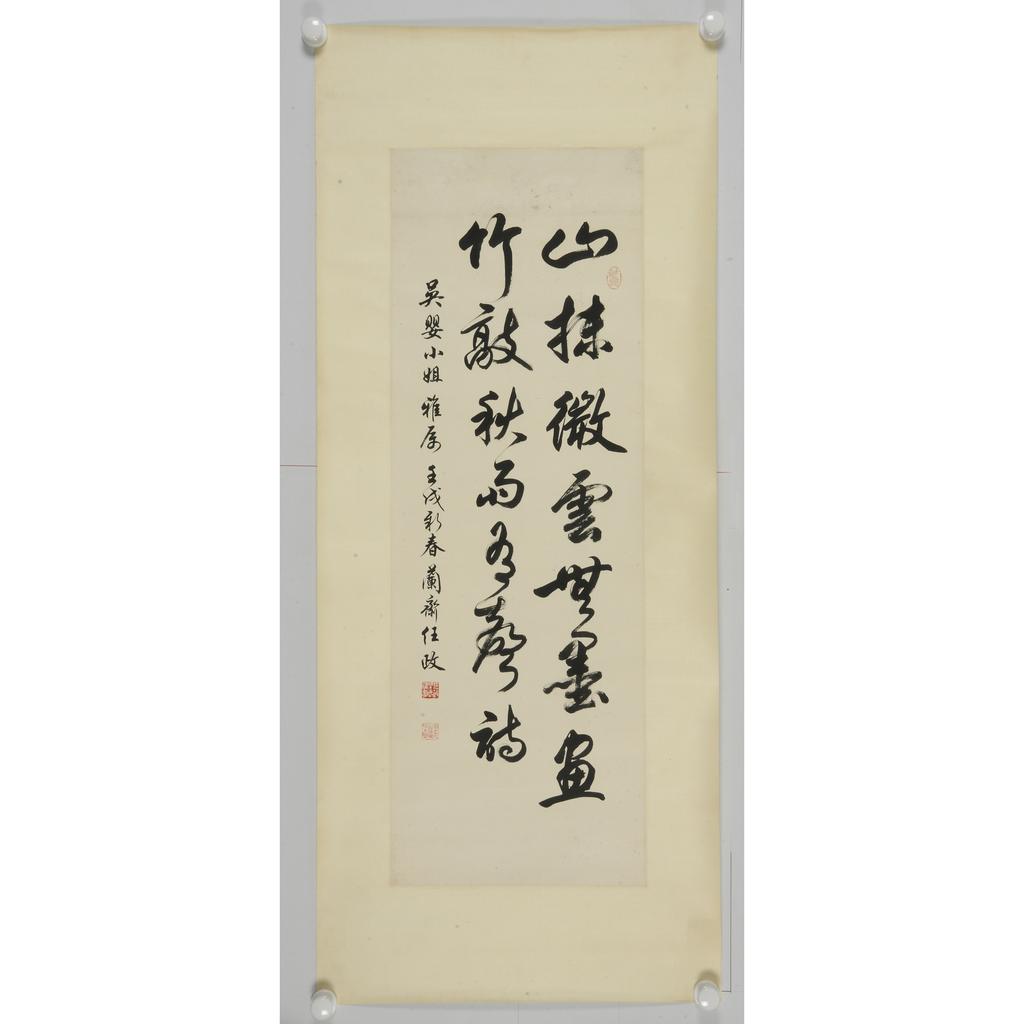 山抹微雲無墨畫
竹敲秋雨有聲詩
吴嬰小姐雅属 壬戌新春 蘭齋任政